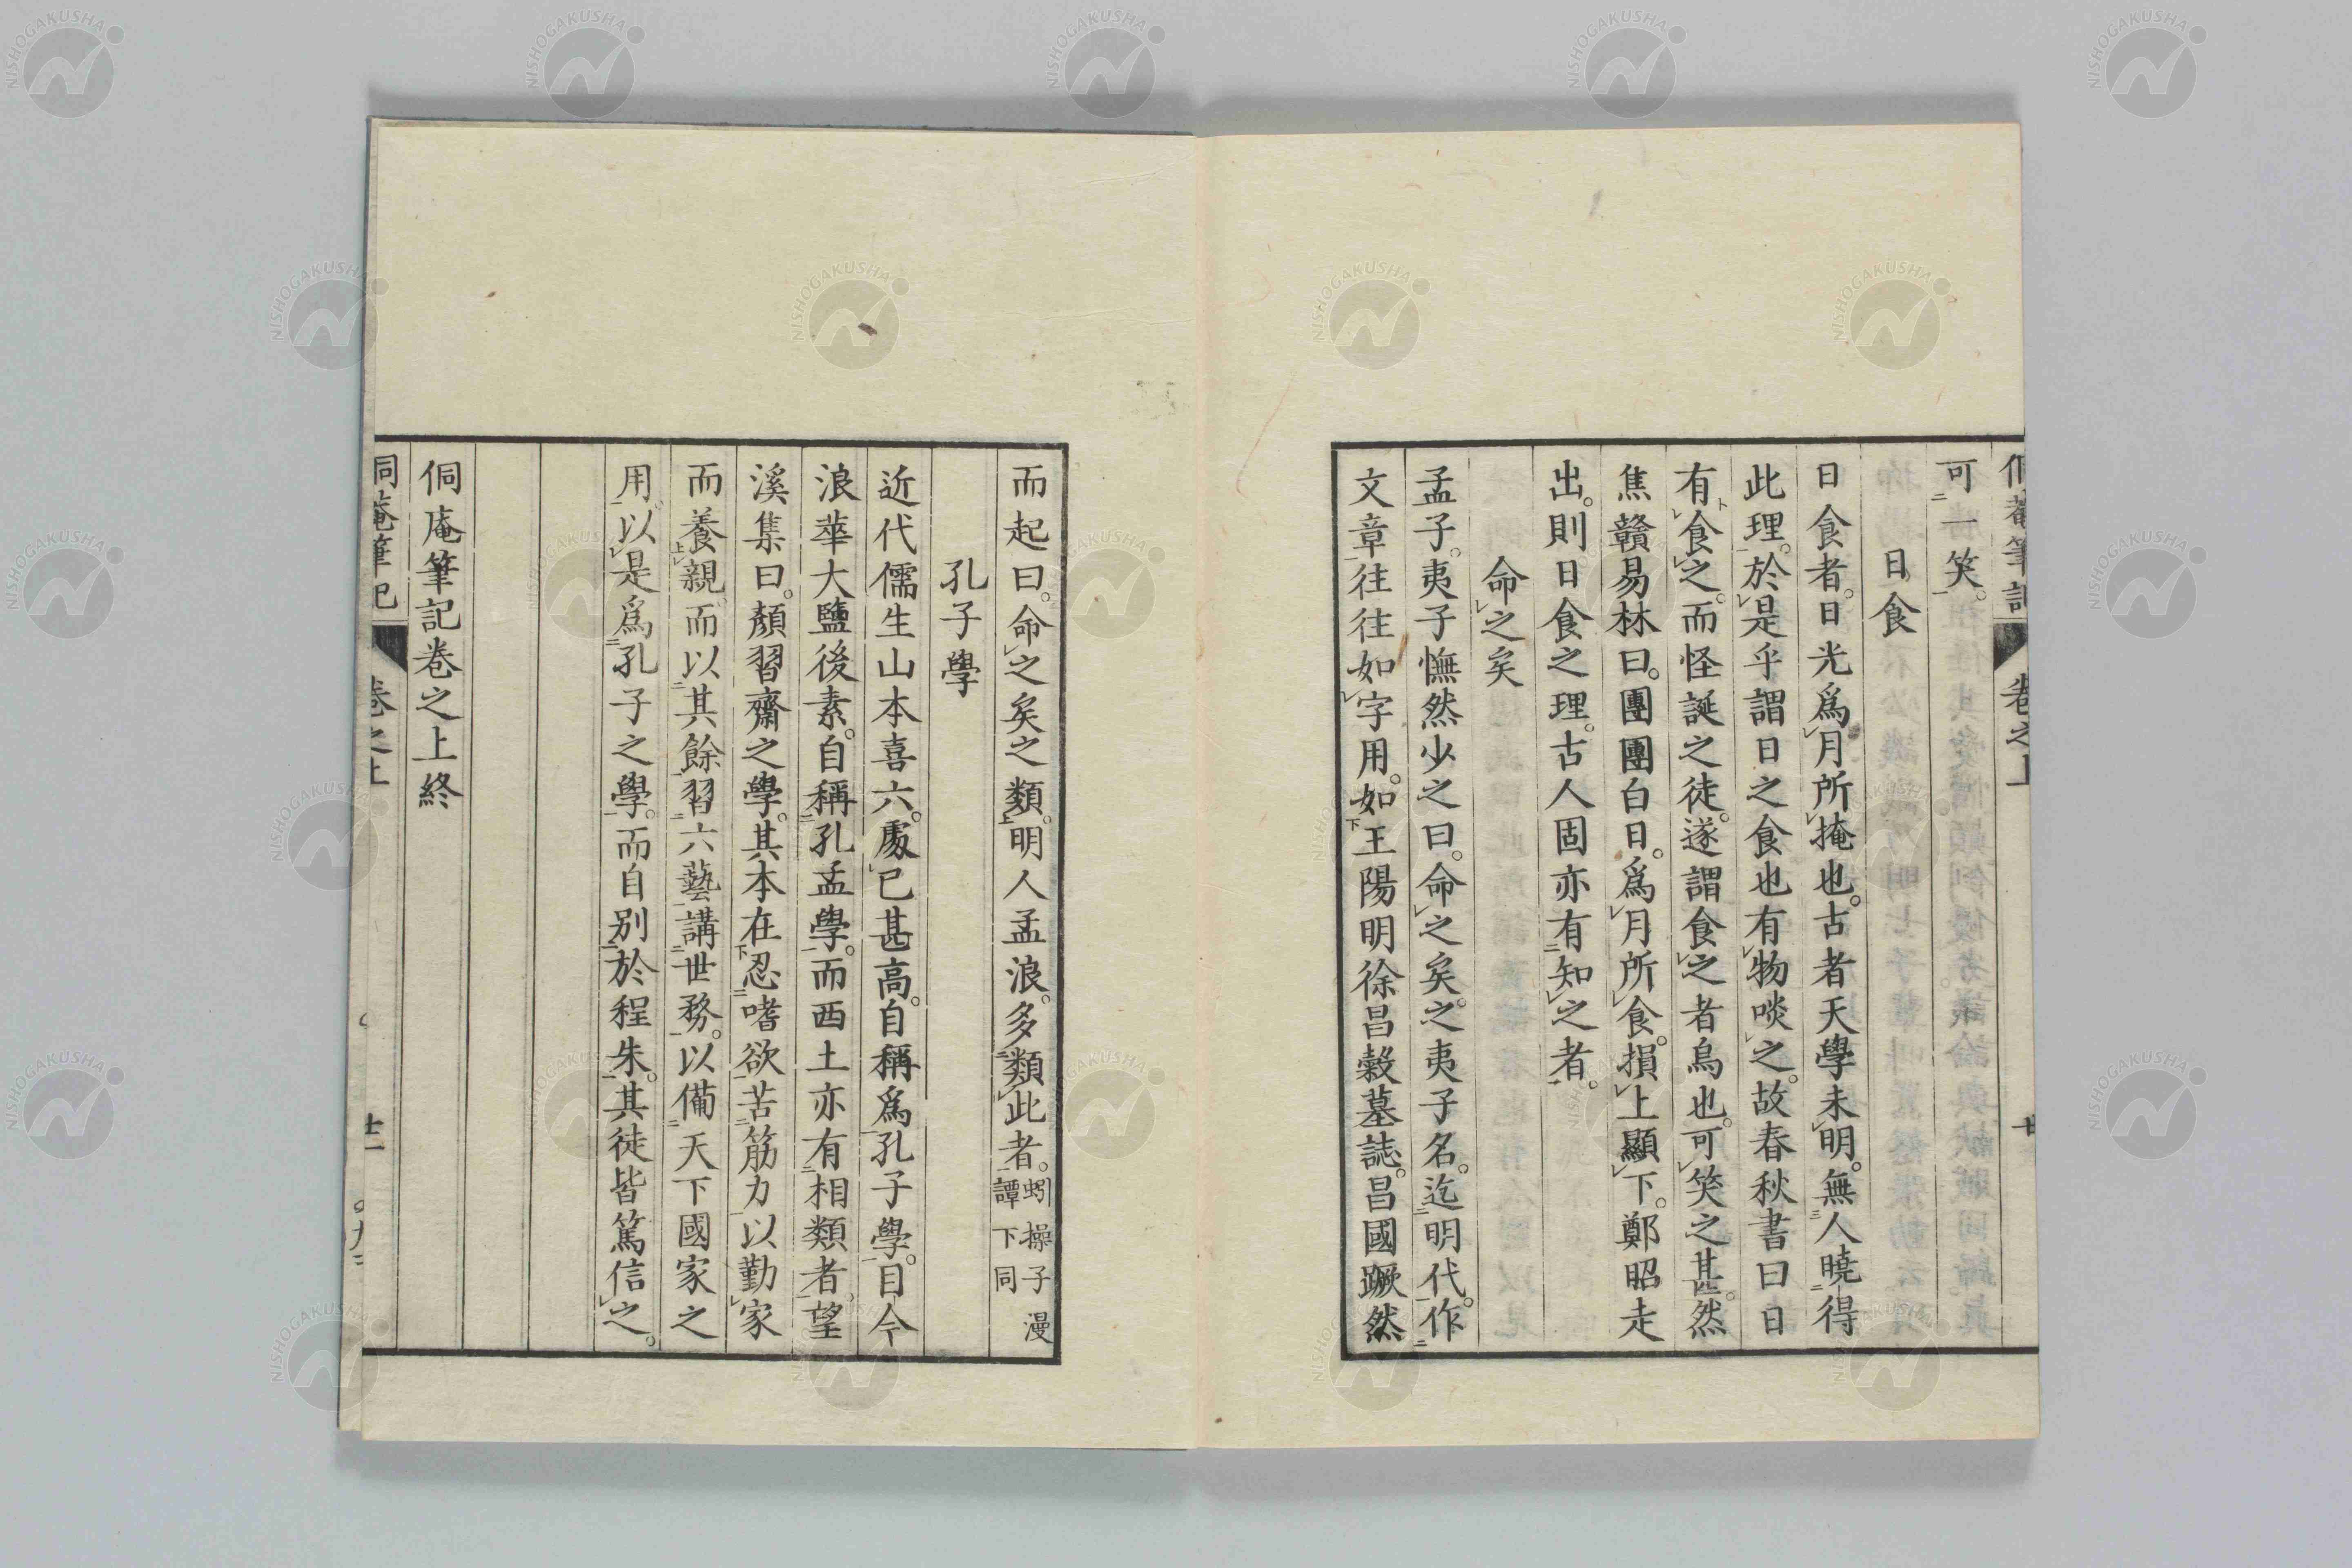 侗菴筆記 卷之上
可一笑。
日食
日食者。日光爲月所掩也。古者天學未明。無人曉得
此理。於是乎謂日之食也有物啖之。故春秋書曰日
有食之。而怪誕之徒。遂謂食之者烏也。可笑之甚。然
焦贛易林曰。團團白日。爲月所食。損上顯下。鄭昭走
出。則日食之理。古人固亦有知之者。
命之矣
孟子。夷子憮然少之曰。命之矣。之夷子名。迄明代。作
文章往往如字用。如王陽明徐昌穀墓誌。昌國蹶然
而起曰。命之矣之類。明人孟浪。多類此者。蚓操子漫
譚下同
孔子學
近代儒生山本喜六。處己甚高。自稱爲孔子學。目今
浪華大鹽後素。自稱孔孟學。而西土亦有相類者。望
溪集曰。顏習齋之學。其本在忍嗜欲苦筋力以勤家
而養親。而以其餘習六藝講世務。以備天下國家之
用。以是爲孔子之學。而自別於程朱。其徒皆篤信之。
侗庵筆記卷之上終
侗菴筆記 卷之上